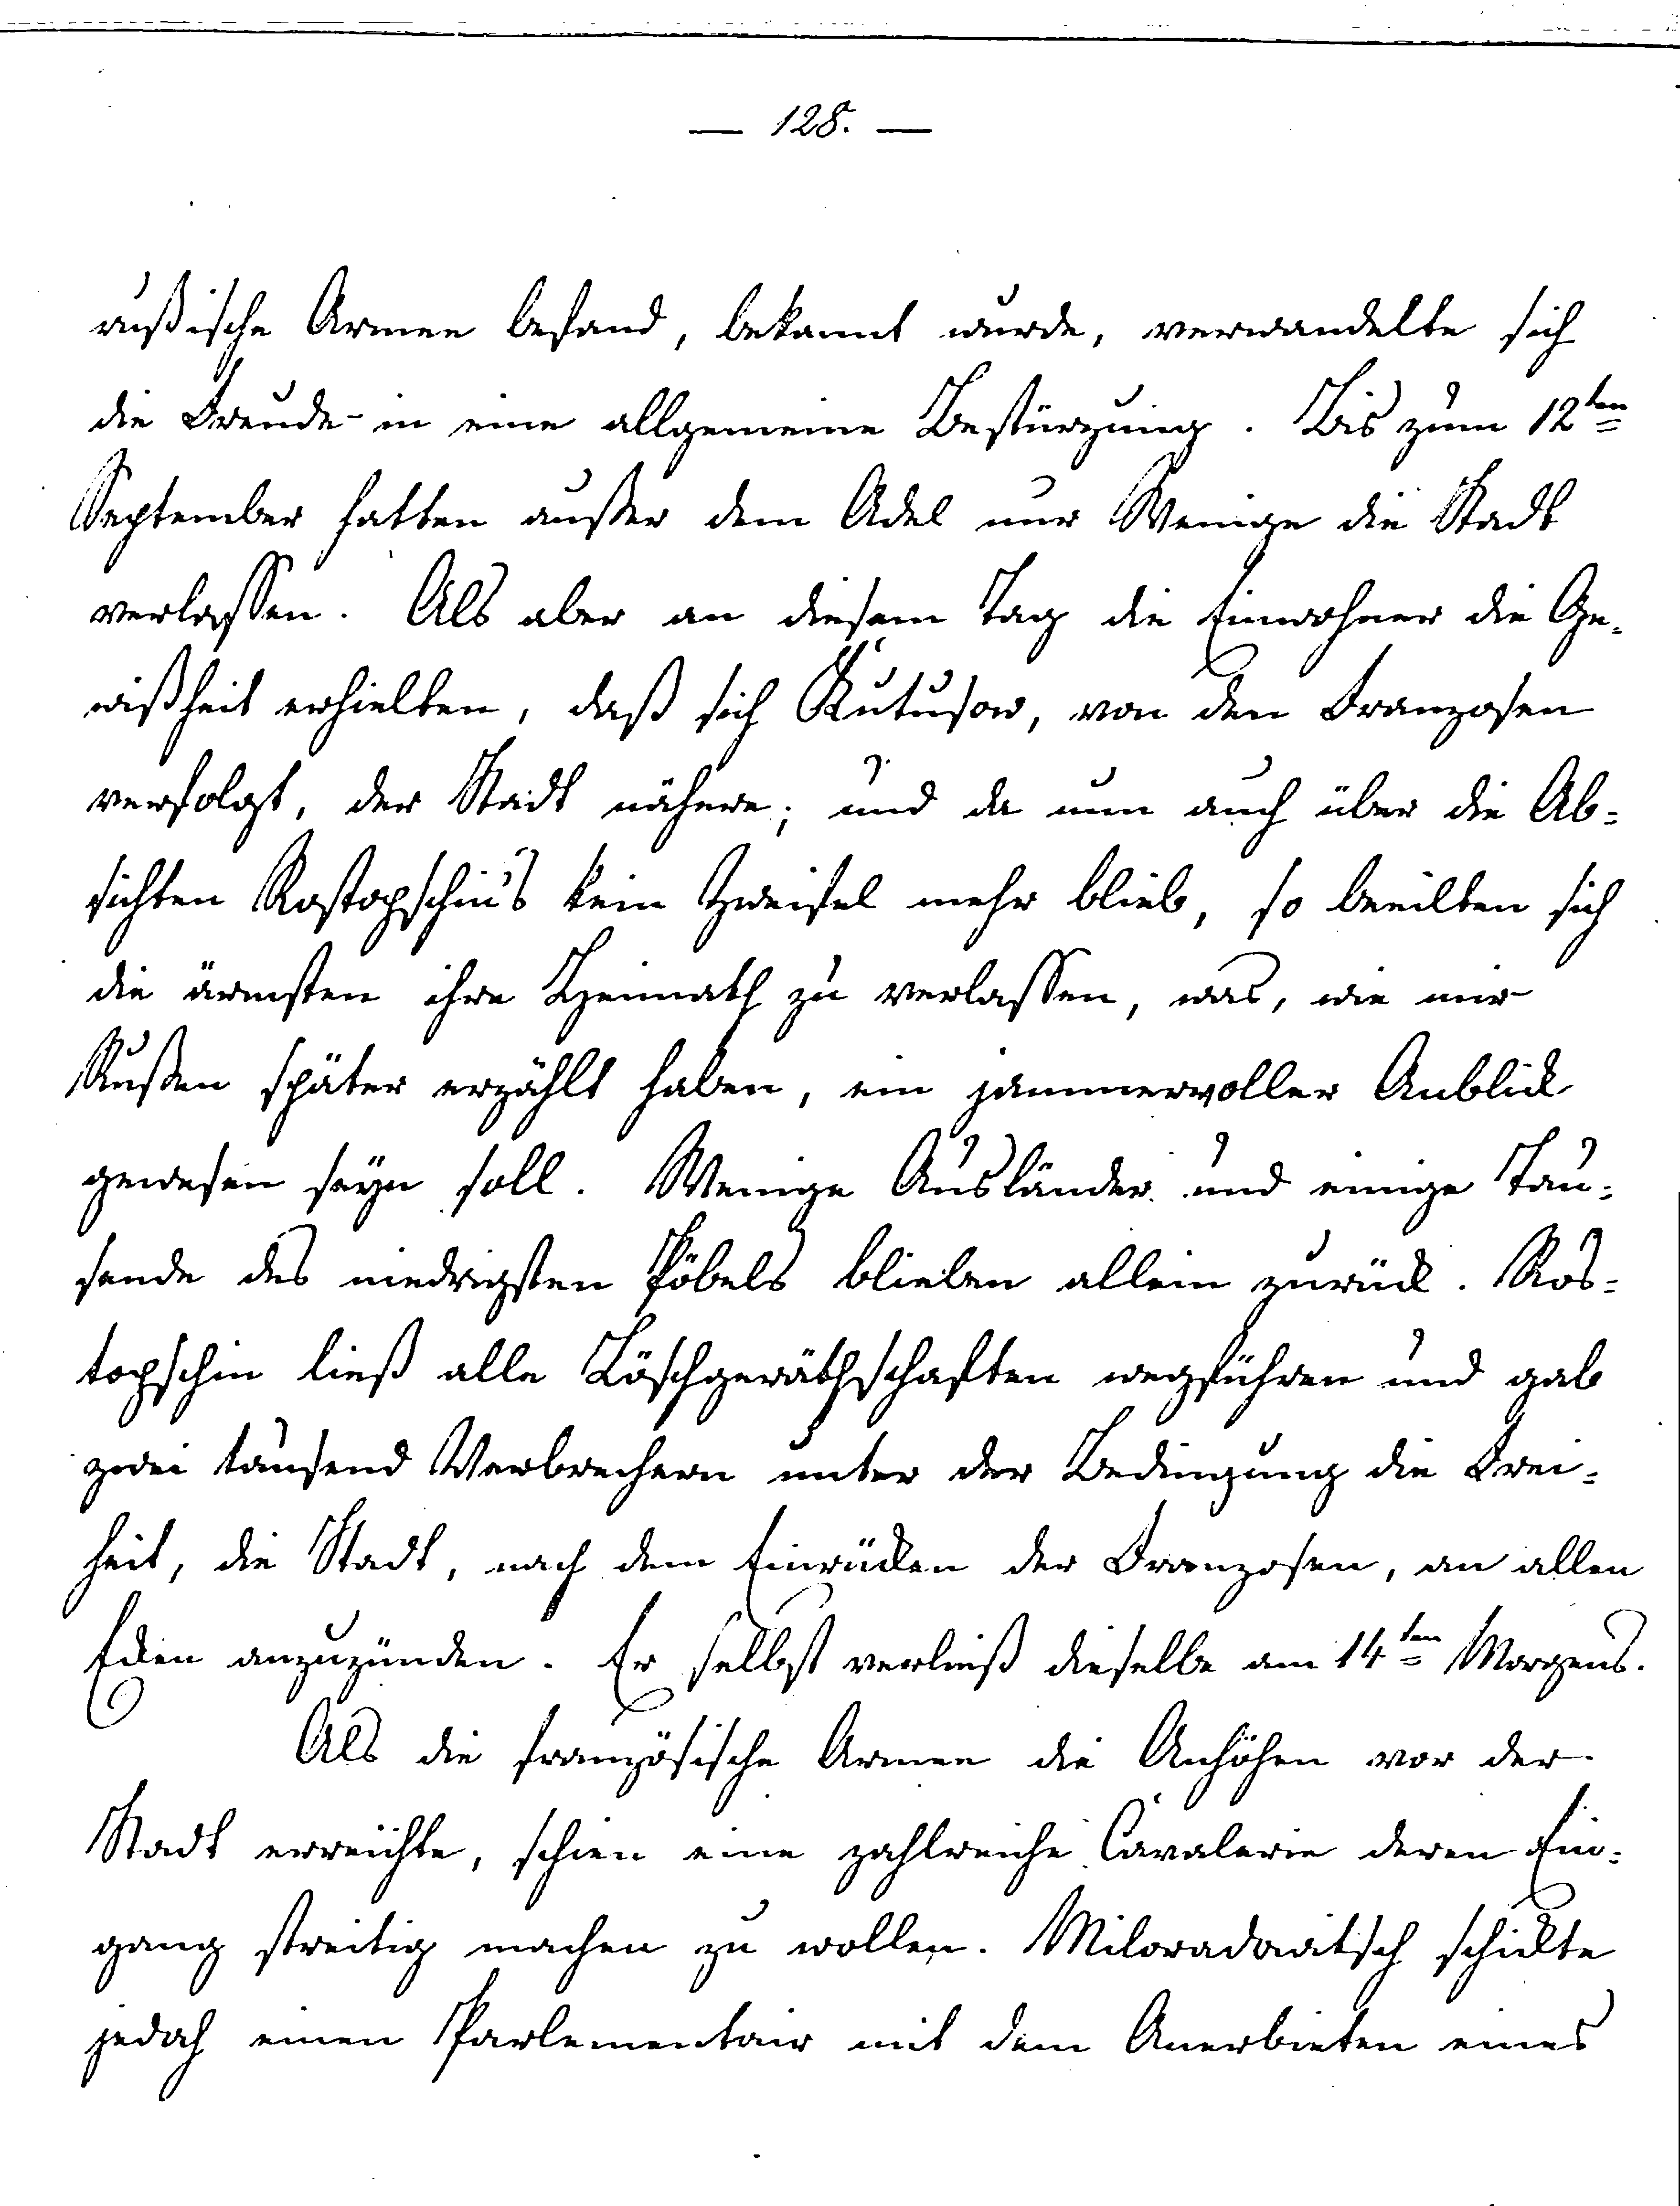 — 128. —
rußische Armee befand, bekannt wurde, verwandelte sich
die Freude in eine allgemeine Bestürzung. Bis zum 12ten
September hatten außer dem Adel nur Wenige die Stadt
verlassen. Als aber an diesem Tag die Einwohner die Ge-
wißheit erhielten, daß sich Kutusow, von den Franzosen
verfolgt, der Stadt nähere; und da nun auch über die Ab-
sichten Rostopschin's kein Zweifel mehr blieb, so beeilten sich
die ärmsten ihre Heimath zu verlassen, was, wie mir
Rußen später erzählt haben, ein jammervoller Anblick
gewesen seyn soll. Wenige Ausländer und einige Tau-
sende des niedrigsten Pöbels blieben allein zurück. Ros-
topschin ließ alle Löschgeräthschaften wegführen und gab
zwei tausend Verbrechern unter der Bedingung die Frei-
heit, die Stadt, nach dem Einrücken der Franzosen, an allen
Ecken anzuzünden. Er selbst verließ dieselbe am 14ten Morgens.
Als die französische Armee die Anhöhen vor der
Stadt erreichte, schien eine zahlreiche Cavalerie deren Ein-
gang streitig machen zu wollen. Miloradowitsch schickte
jedoch einen Parlementair mit dem Anerbieten eines